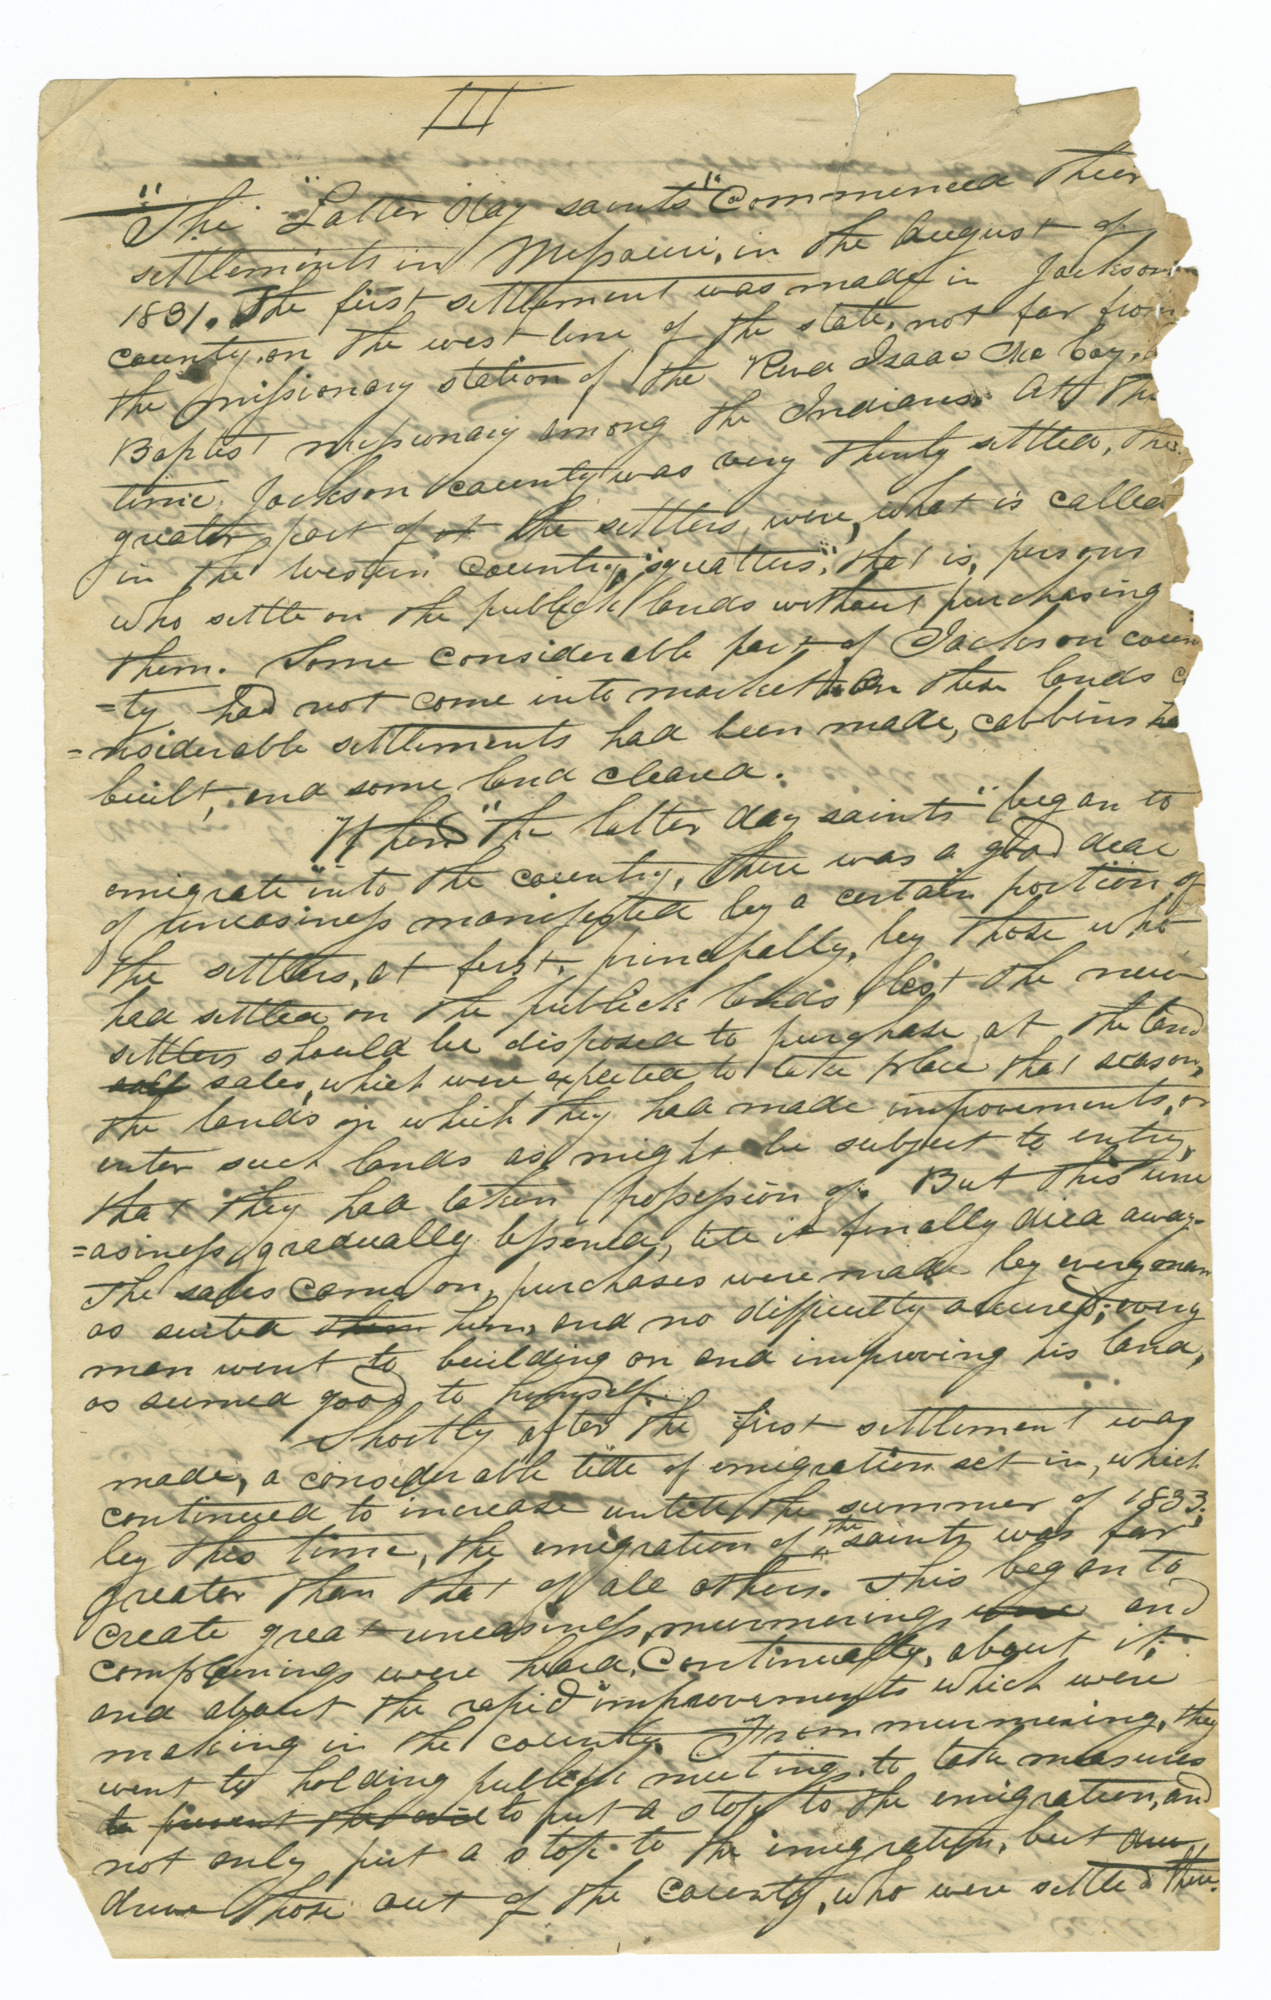 III
"The "Latter Day saints" Commenced their
settlements in Missouri, in the August of
1831. The first settlement was made in Jackson
county, on the west line of the state, not far from
the missionary station of the Revd Isaac Mc Coy, a
Baptist missionary among the Indians. At the
time, Jackson county was very thinly settled, the
greater part of the settlers, were, what is called
in the western country, "squatters," that is, persons
who settle on the publick lands without purchasing
them. Some considerable part of Jackson coun
=ty had not come into market. On these lands co
=nsiderable settlements had been made, cabbins
built, and some land cleared.
When "the latter day saints" began to
emigrate into the country, there was a good deal
of uneasiness manifested by a certain portion of
the settlers, at first, principally, by those who
had settled on the publick lands, lest the new
settlers should be disposed to purchase, at the land
sales, which were expected to take place that season,
the lands on which they had made improvements, or
enter such lands as might be subject to entry,
that they had taken possession of. But this une
=asiness gradually lessened, till it finally died away.
The sales came on, purchases were made by every man
as suited them him, and no difficulty occured; every
man went to building on and improving his land,
as seemed good to himself.
Shortly after the first settlement was
made, a considerable tide of emigration set in, which
continued to increase untill the summer of 1833;
by this time, the emigration of the saints was far
greater than that of all others. This began to
create great uneasiness, murmurings were and
complainings were heard, Continually, about it;
and about the rapid improvements which were
making in the county. From murmuring, they
went to holding publick meetings, to take measures
to prevent the to put a stop to the emigration, and
not only put a stop to the imigration, but
drive those out of the county, who were settled there.